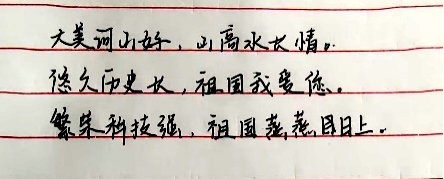 大美河山好，山高水长情。
悠久历史长，祖国我爱您。
繁荣科技强，祖国蒸蒸日日上。